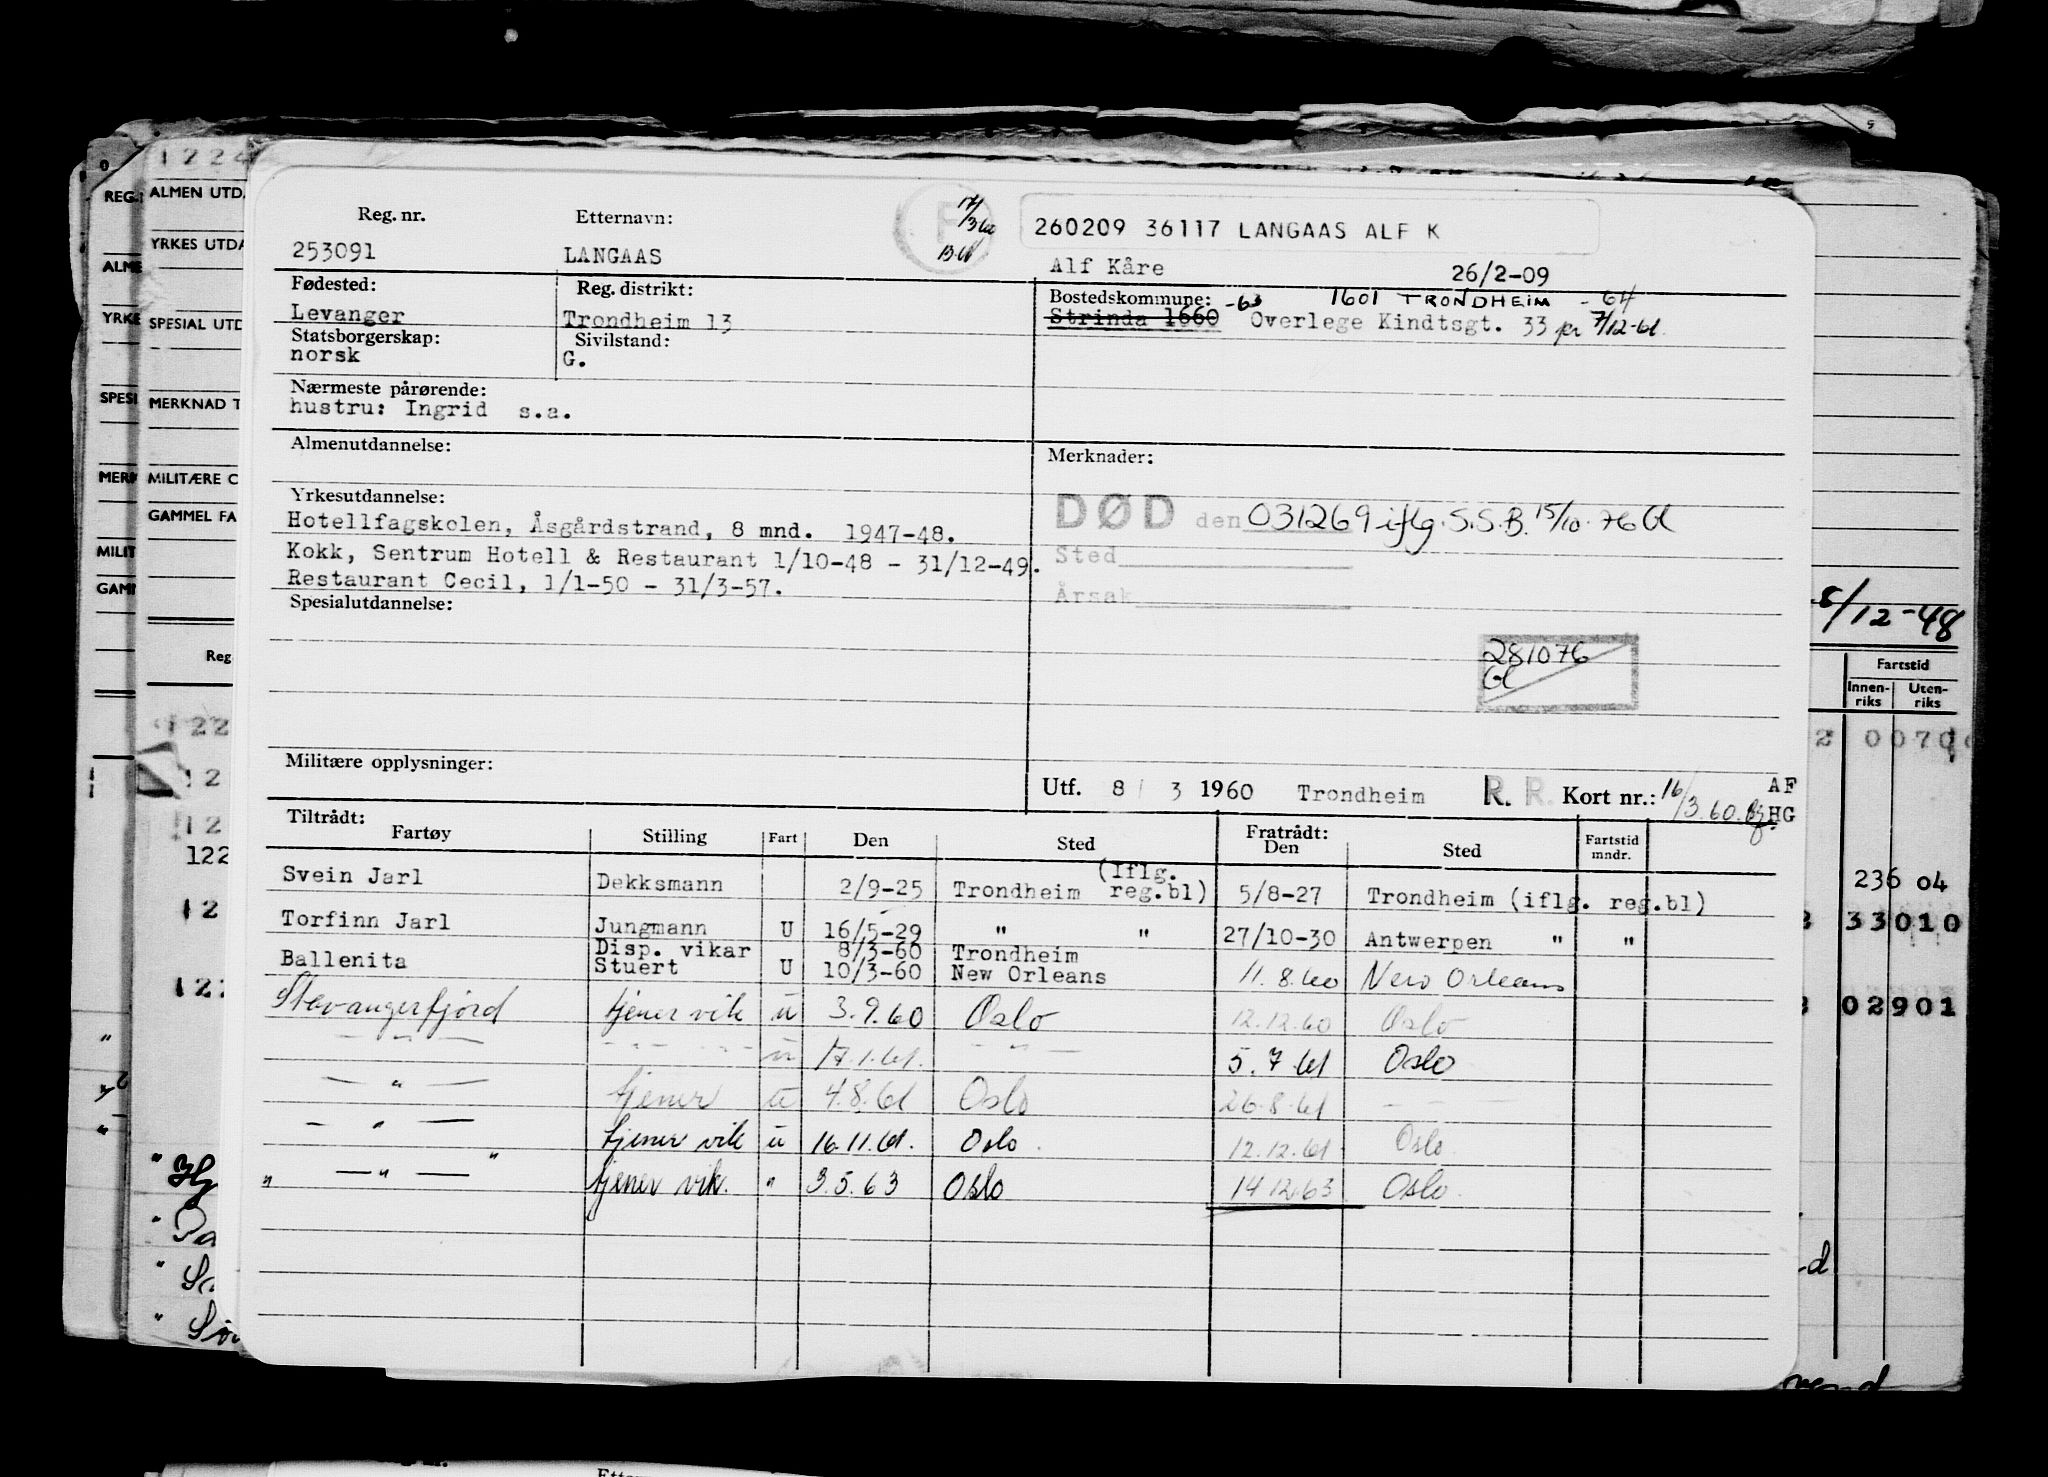 Reg. nr. Etternavn: 17/3 60
253091 LANGAAS
260209 36117 LANGAAS ALF K
Alf Kåre 26/2-09
Fødested: Reg. distrikt: Bostedskommune: -63 1601 TRONDHEIM -64
Levanger Trondheim 13 Strinda 1660 Overlege Kindtsgt. 33 pr 7/12-61.
Statsborgerskap: Sivilstand:
norsk G.
Nærmeste pårørende:
hustru: Ingrid s.a.
Almenutdannelse: Merknader:
Yrkesutdannelse:
Hotellfagskolen, Åsgårdstrand, 8 mnd. 1947-48.
Kokk, Sentrum Hotell & Restaurant 1/10-48 - 31/12-49.
Restaurant Cecil, 1/1-50 - 31/3-57.
DØD den 031269 iflg. S.S.B. 15/10-76
Sted
Årsak
Spesialutdannelse:
281076
Militære opplysninger:
Utf. 8/ 3 1960 Trondheim R. R. Kort nr.: 16/3.60. AF
HG
Tiltrådt: Fratrådt:
Fartøy Stilling Fart Den Sted Den Sted Fartstid mndr.
Svein Jarl Dekksmann 2/9-25 Trondheim (Iflg. reg.bl) 5/8-27 Trondheim (iflg. reg.bl)
Torfinn Jarl Jungmann U 16/5-29 " " 27/10-30 Antwerpen " "
Disp. vikar 8/3-60 Trondheim
Ballenita Stuert U 10/3-60 New Orleans 11.8.60 New Orleans
Stavangerfjord tjener vik u 3.9.60 Oslo 12.12.60 Oslo
— " — — " — u 17.1.61. — " — 5.7.61 Oslo
— " — tjener u 4.8.61 Oslo 26.8.61 — — —
— " — tjener vik u 16.11.61. Oslo. 12.12.61 Oslo
" — " — " tjener vik. " 3.5.63 Oslo 14.12.63 Oslo.
1224
REG.
ALMEN UTD.
YRKES UTDA
ALME
YRKE
SPESIAL UTD
SPESI
MERKNAD T
MERK
MILITÆRE O
GAMMEL FA
MILIT
GAMM
Reg
122
12
12
122
12
122
8/12-48
Fartstid
Innen-riks Uten-riks
2 0070
236 04
33010
02901
Etternavn: